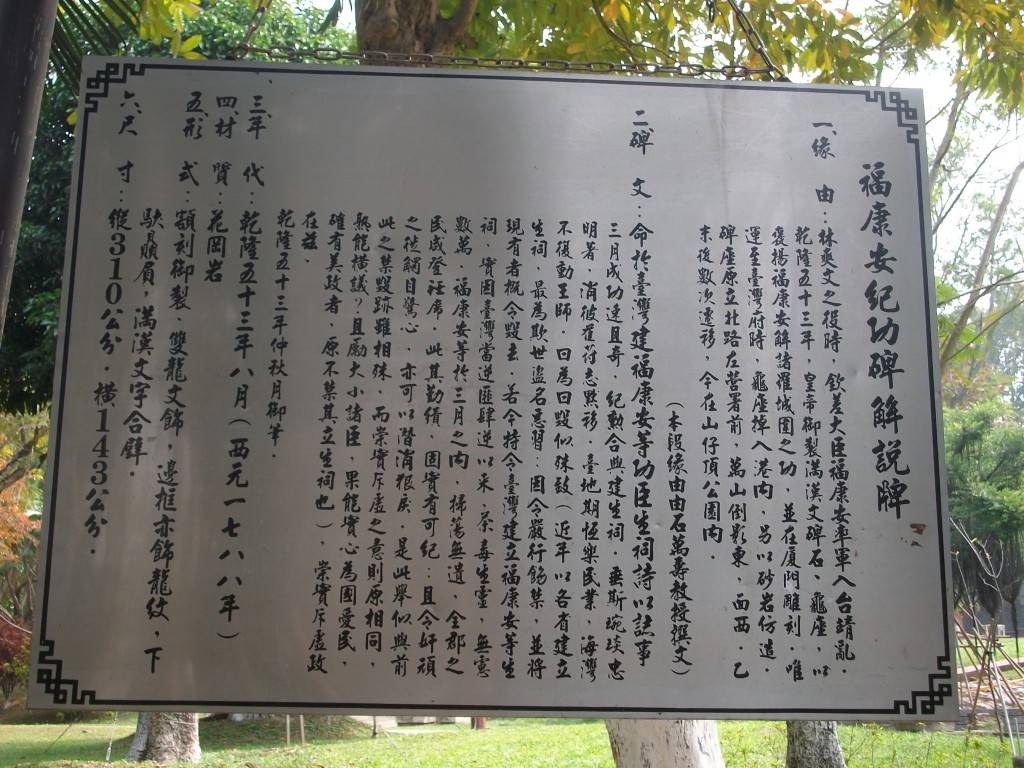 福康安紀功碑解說牌
一、緣　由：林爽文之役時，欽差大臣福康安率軍入台靖亂．
乾隆五十三年，皇帝御製滿漢文碑石、龜座，以
褒揚福康安解諸羅城圍之功，並在廈門雕刻，唯
運至臺灣府時，龜座掉入港內，另以砂岩仿造．
碑座原立北路左營署前，萬山倒影東，西西，乙
末後數次遷移，今在山仔頂公園內．
（本段緣由由石萬壽教授撰文）
二、碑　文：命於臺灣建福康安等功臣生祠詩以誌事
三月成功速且奇，紀勳合與建生祠，垂斯琬琰忠
明著，消彼萑苻志默移，臺地期恆樂民業，海灣
不復動王師，曰為曰毀似殊致（近年以各省建立
生祠，最為欺世盜名惡習：因令嚴行飭禁，並將
現有者概令毀去，若今特令臺灣建立福康安等生
祠，實因臺灣當逆匪肆逆以來，荼毒生靈，無慮
數萬，福康安等於三月之內，掃蕩無遺，全郡之
民咸登衽席，此其勳績，固實有可紀：且令奸頑
之徒觸目驚心，亦可以潛消狠戾，是此舉似與前
此之禁毀跡雖相殊，而崇實斥虛之意則原相同，
孰能橫議？且勵大小諸臣，果能實心為國愛民，
確有美政者，原不禁其立生祠也），崇實斥虛政
在茲．
乾隆五十三年仲秋月御筆．
三、年　代：乾隆五十三年八月（西元一七八八年）
四、材　質：花岡岩
五、形　式：額刻御製，雙龍文飾，邊框亦飾龍紋，下
馱贔屓，滿漢文字合璧．
六、尺　寸：縱310公分，橫143公分．